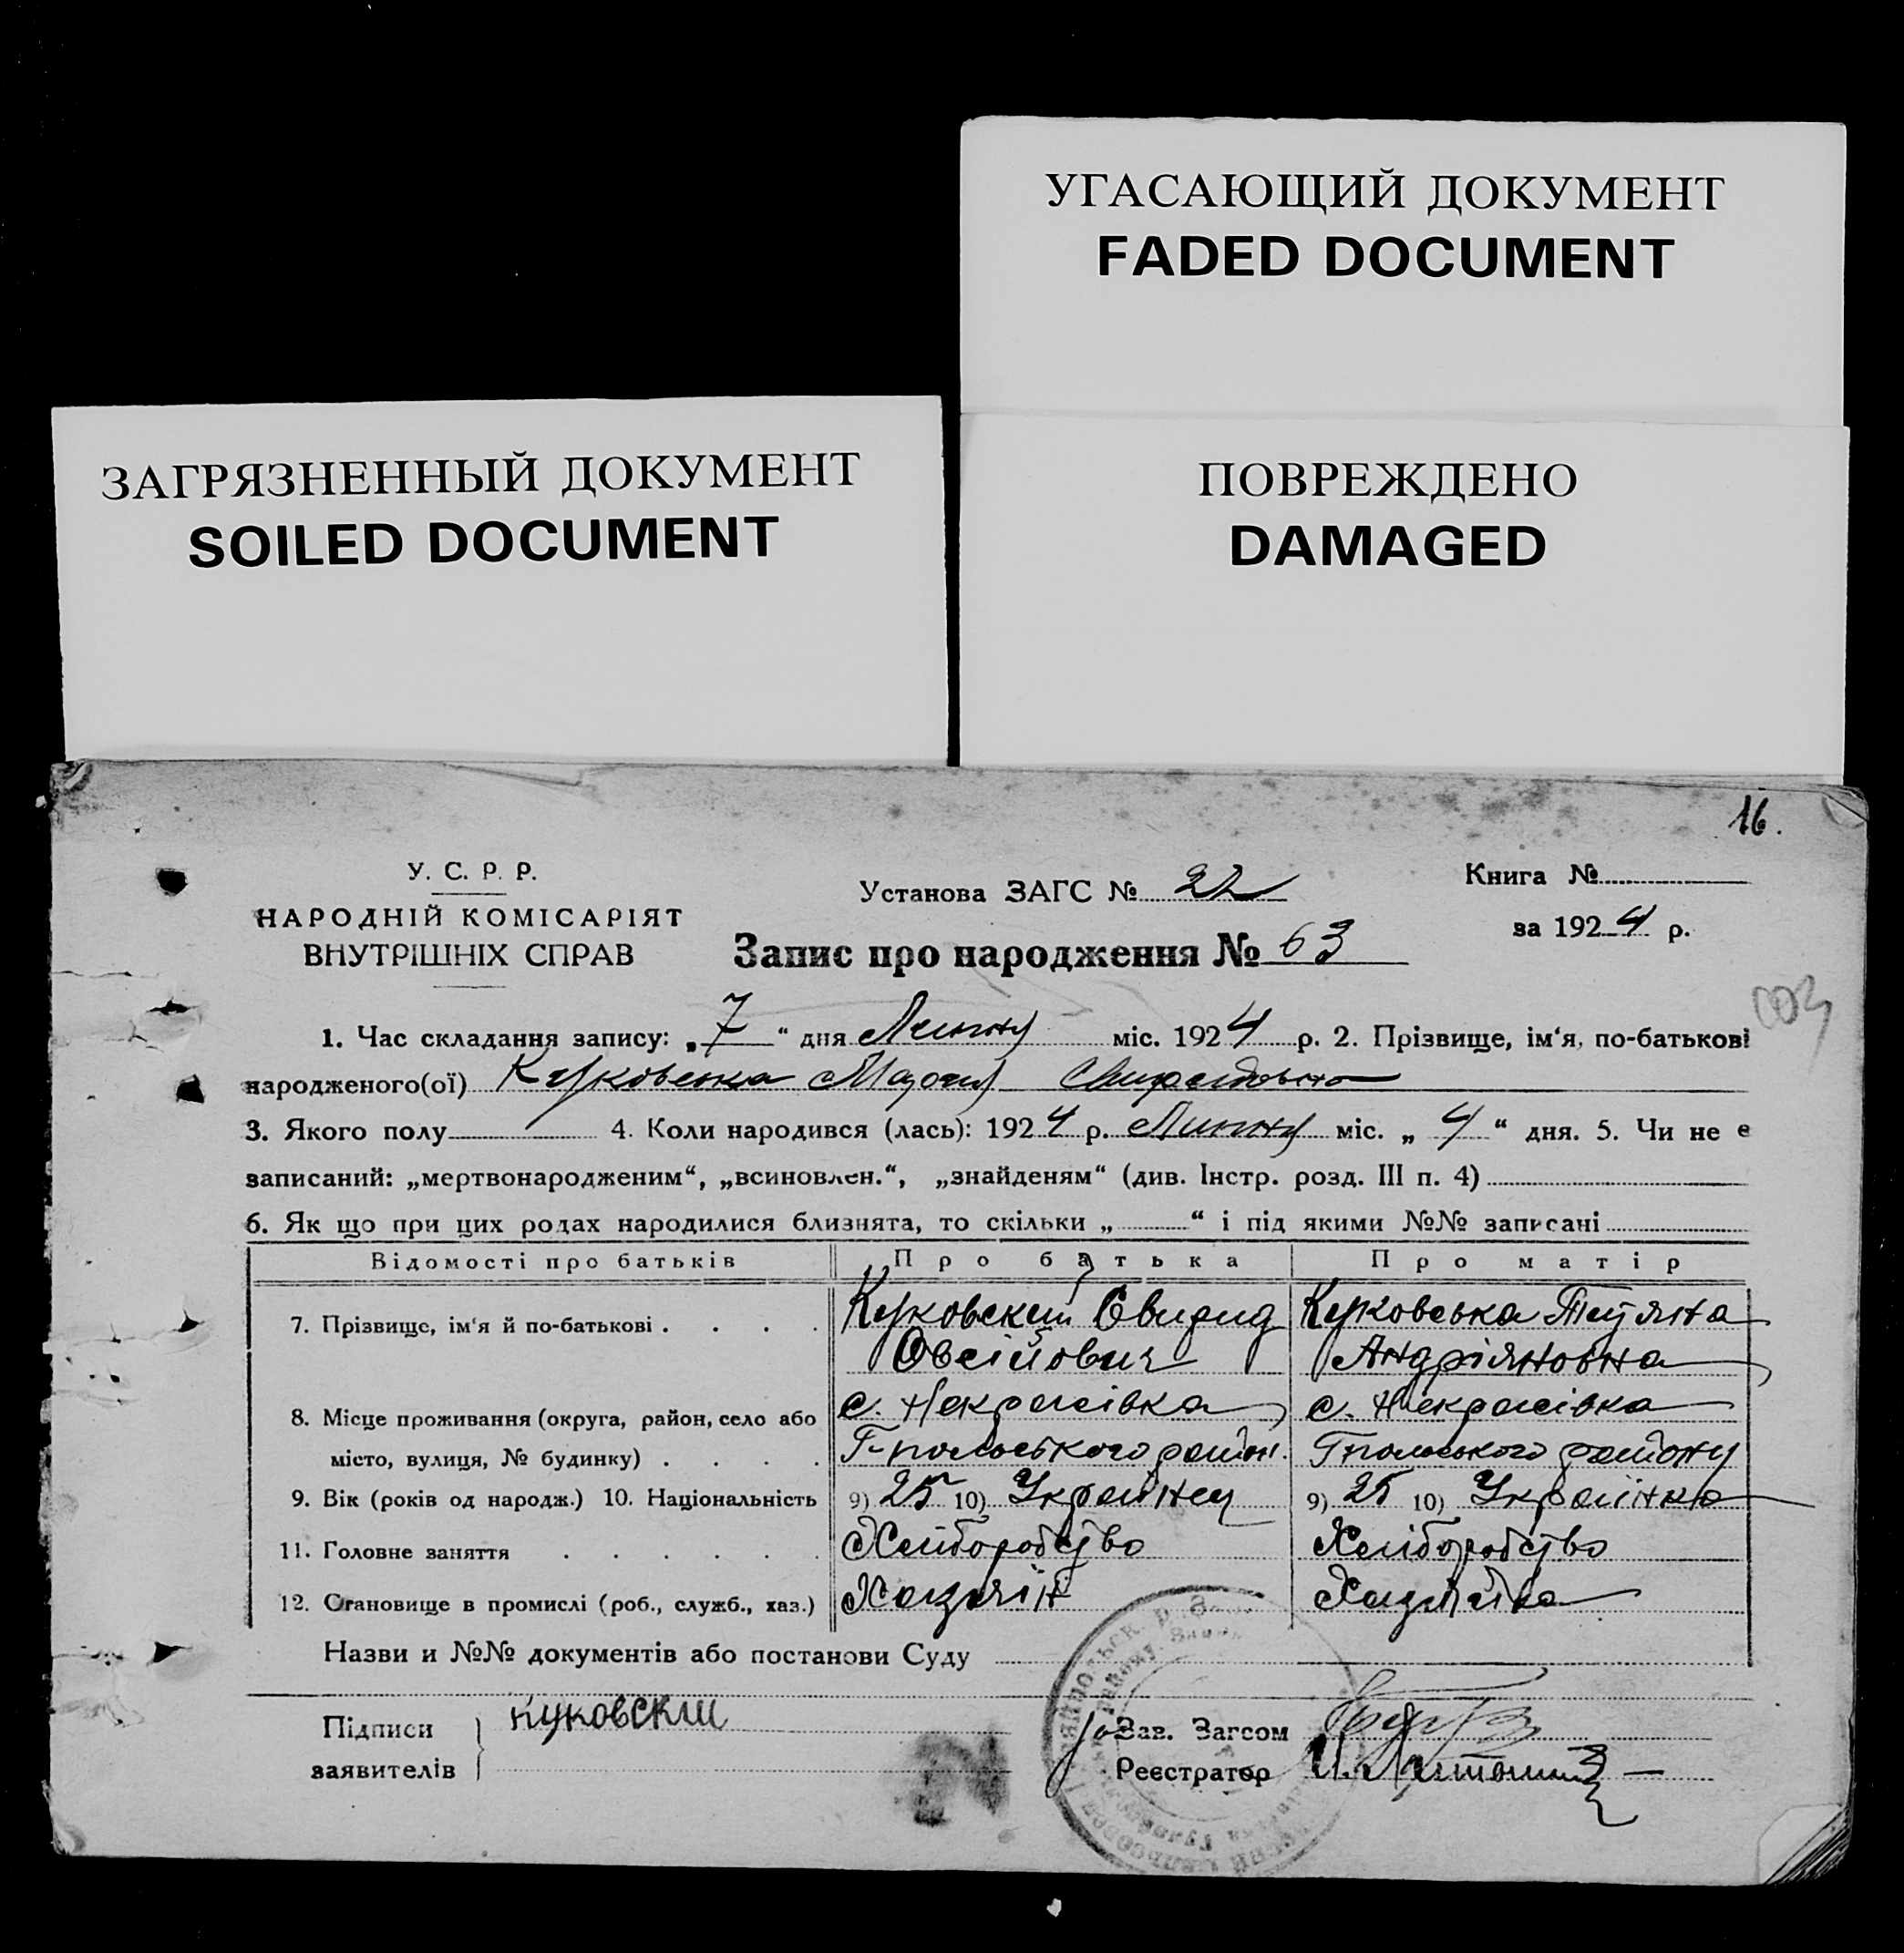 УГАСАЮЩИЙ ДОКУМЕНТ
FADED DOCUMENT
ЗАГРЯЗНЕННЫЙ ДОКУМЕНТ
SOILED DOCUMENT
ПОВРЕЖДЕНО
DAMAGED
16.
У. С. Р. Р.
НАРОДНІЙ КОМІСАРІЯТ
ВНУТРІШНІХ СПРАВ
Установа ЗАГС № 22
Запис про народження № 63
Книга №
за 1924 р.
1. Час складання запису: „7“ дня Липня міс. 1924 р. 2. Прізвище, ім‘я, по-батькові
народженого(ої) Куковська Мария Свиридовна
3. Якого полу 4. Коли народився (лась): 1924 р. Липня міс. „4“ дня. 5. Чи не е
записаний: „мертвонародженим“, „всиновлен.“, „знайденям“ (див. Інстр. розд. III п. 4)
6. Як що при цих родах народилися близнята, то скільки „ “ і під якими №№ записані
Відомості про батьків Про батька Про матір
7. Прізвище, ім‘я й по-батькові . . . . Куковский Свирид Куковська Тетяна
Овсійович Андріяновна
8. Місце проживання (округа, район, село або с. Некрасівка с. Некрасівка
місто, вулиця, № будинку) . . . . району
9. Вік (років од народж.) 10. Національність 9) 25 10) Украінец 9) 25 10) Украінка
11. Головне заняття . . . . . . Хліборобство Хліборобство
12. Становище в промислі (роб., служб., хаз.) Хазяін Хазяйка
Назви и №№ документів або постанови Суду
Підписи куковский Зав. Загсом
заявителів Реєстратор